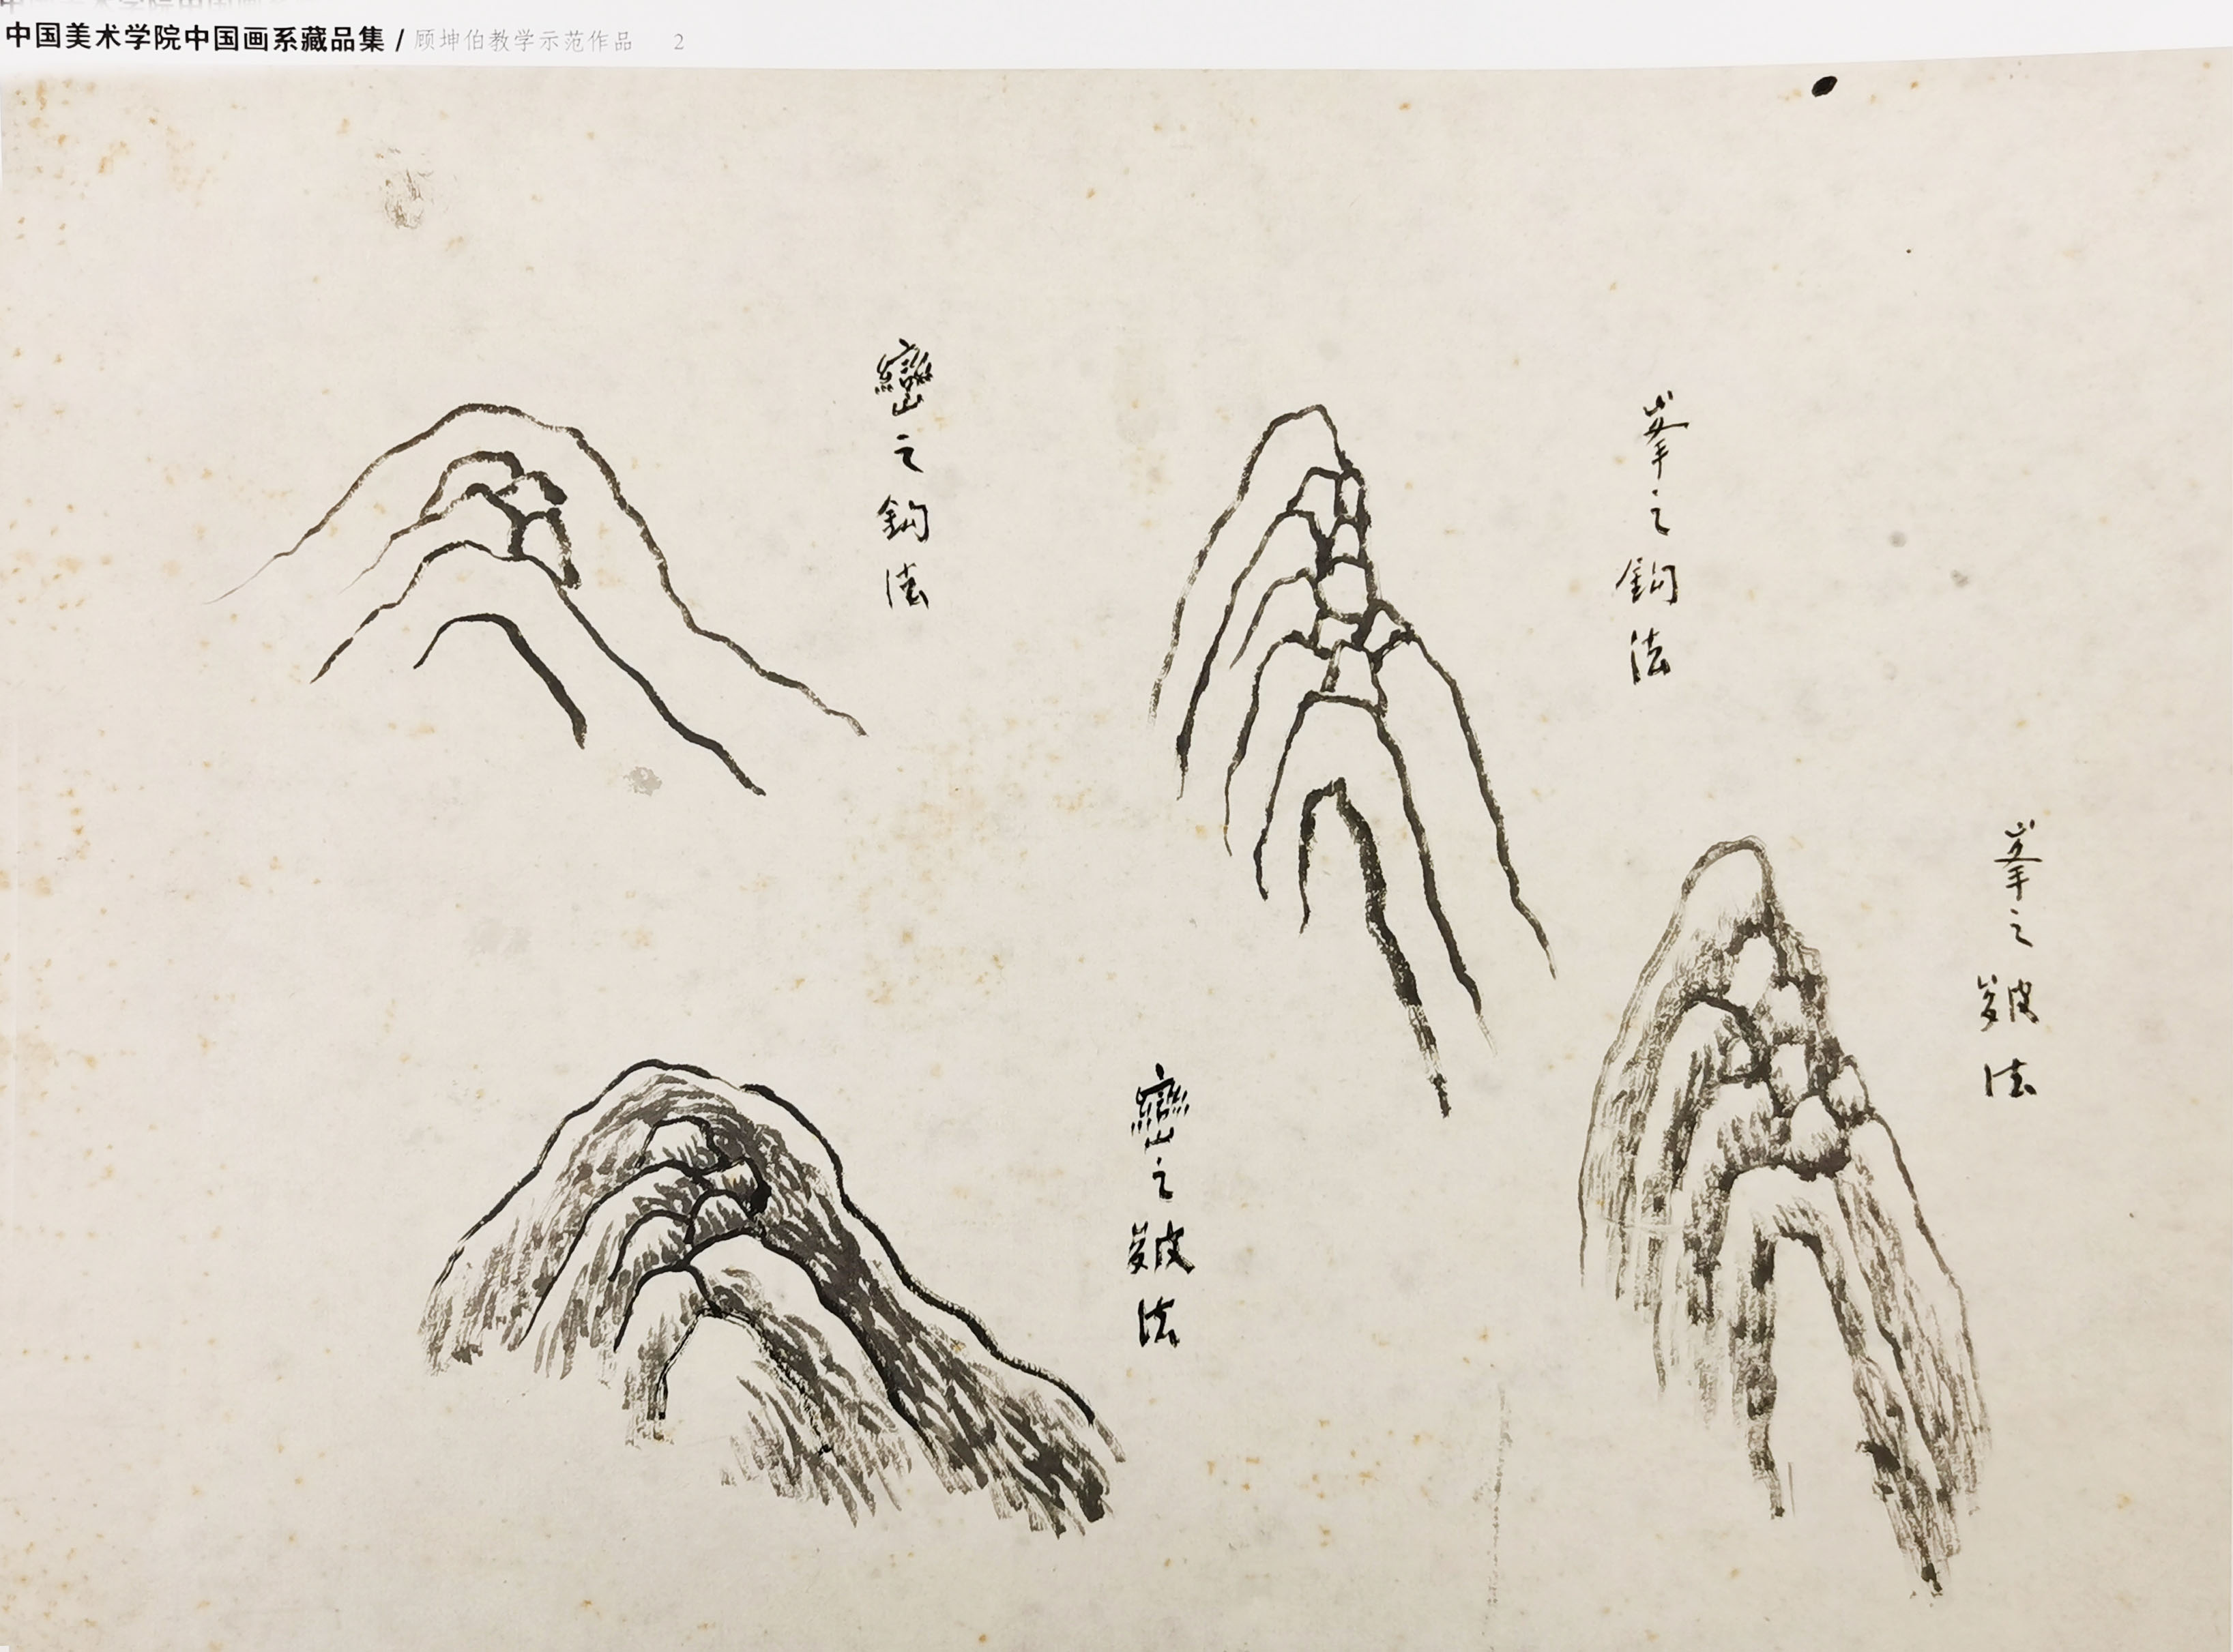 中国美术学院中国画系藏品集 / 顾坤伯教学示范作品 2
峯之鈎法
峯之皴法
巒之鈎法
巒之皴法